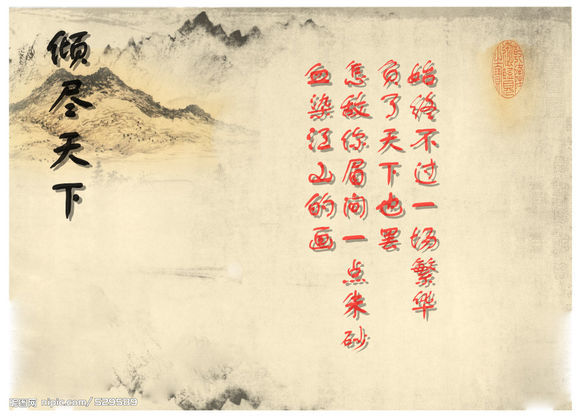 倾尽天下
血染江山的画
怎敌你眉间一点朱砂
负了天下也罢
始终不过一场繁华
昵图网 nipic.com/529589